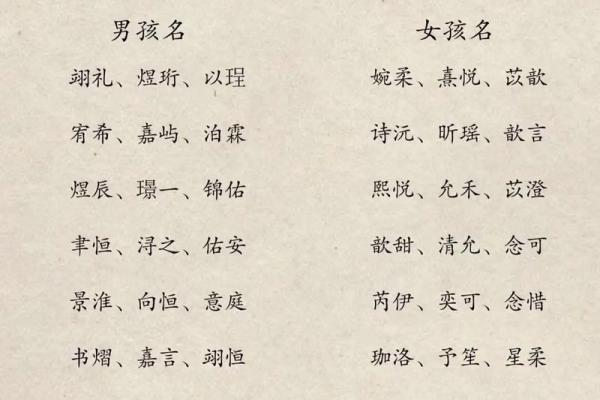 男孩名 女孩名
翊礼、煜珩、以珵 婉柔、熹悦、苡歆
宥希、嘉屿、泊霖 诗沅、昕瑶、歆言
煜辰、璟一、锦佑 熙悦、允禾、苡澄
聿恒、浔之、佑安 歆甜、清允、念可
景淮、向恒、意庭 芮伊、奕可、念惜
书熠、嘉言、翊恒 珈洛、予笙、星柔